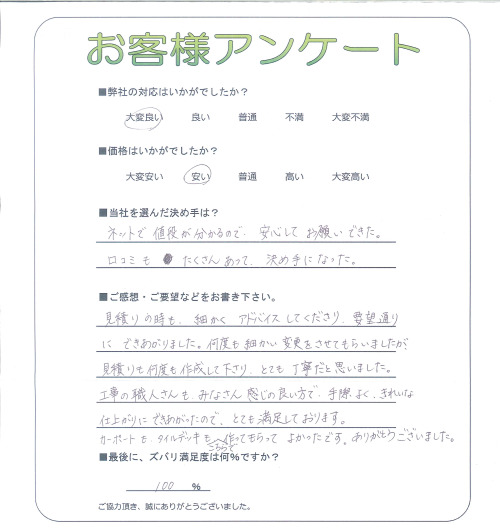 お客様アンケート
■弊社の対応はいかがでしたか？
大変良い 良い 普通 不満 大変不満
■価格はいかがでしたか？
大変安い 安い 普通 高い 大変高い
■当社を選んだ決め手は？
ネットで 値段が分かるので、安心して お願いできた。
口コミも たくさんあって、決め手になった。
■ご感想・ご要望などをお書き下さい。
見積りの時も、細かく アドバイスしてくださり、要望通り
に できあがりました。何度も細かい変更をさせてもらいましたが、
見積りも何度も作成して下さり、とても 丁寧だと思いました。
工事の職人さんも、みなさん 感じの良い方で、手際よく、きれいな
仕上がりにできあがったので、とても満足しております。
カーポートも、タイルデッキも 作ってもらって よかったです。ありがとうございました。
こちらで
■最後に、ズバリ満足度は何％ですか？
100 %
ご協力頂き、誠にありがとうございました。